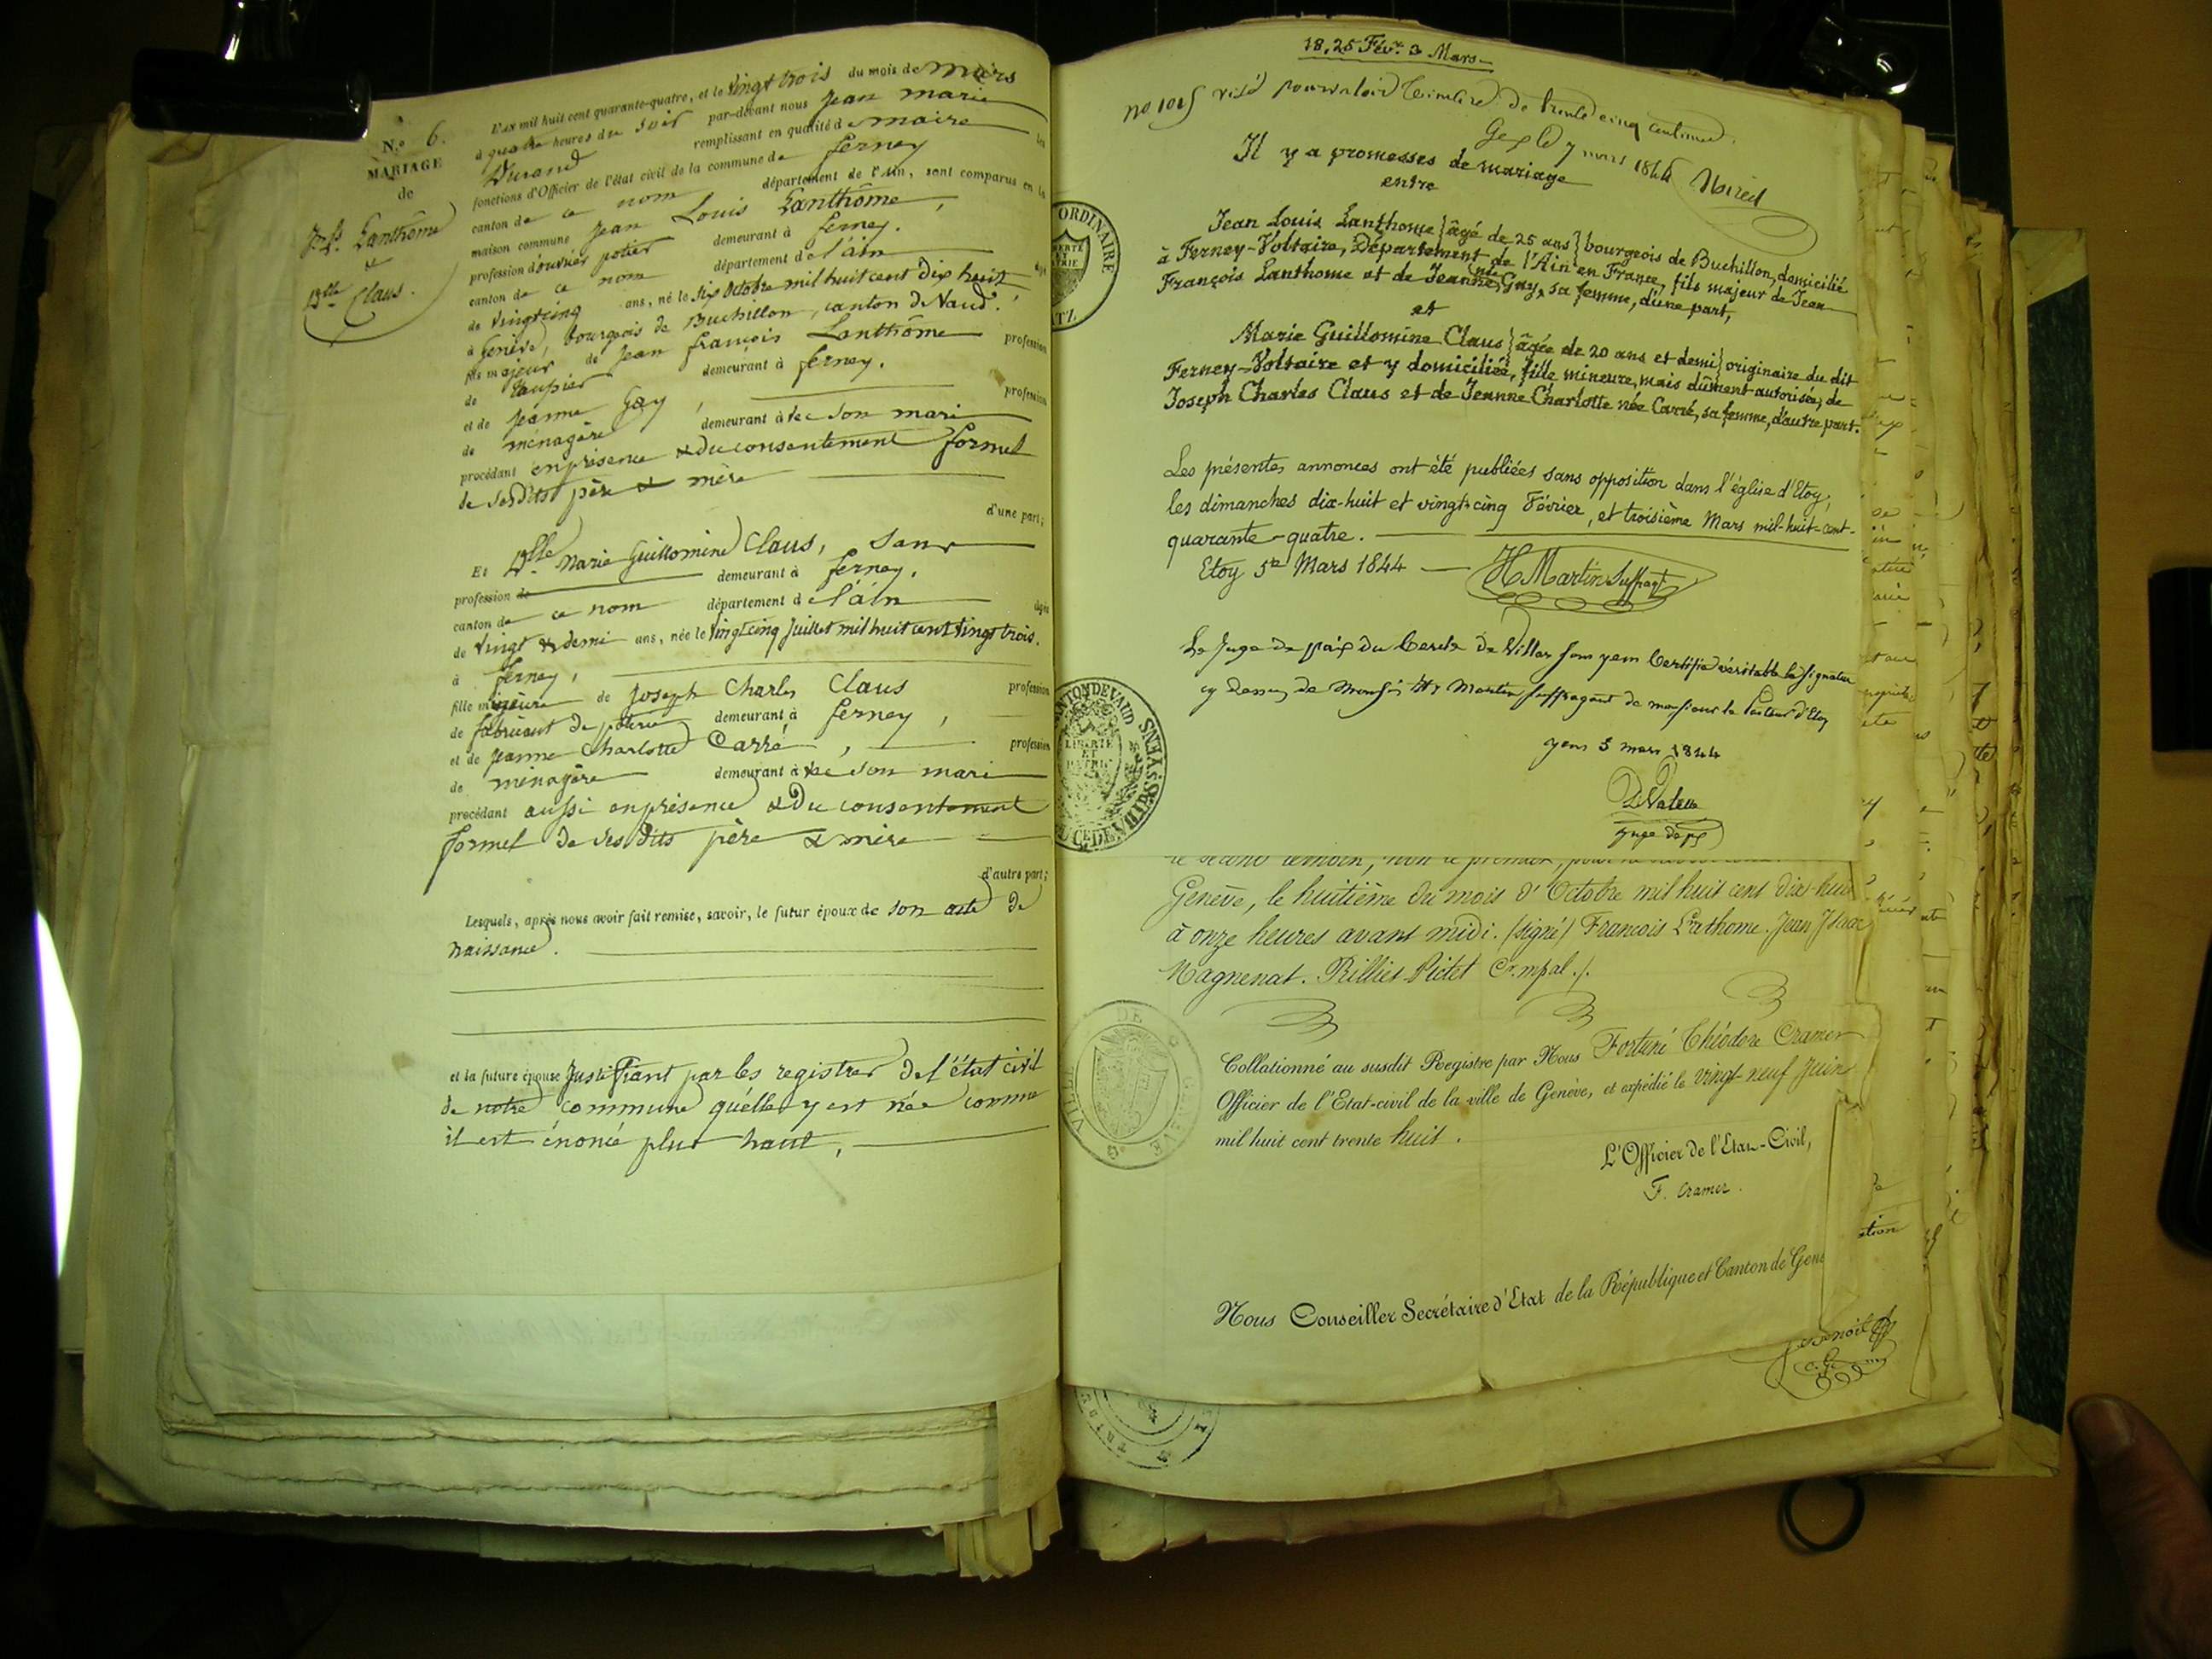 N.o 6.
MARIAGE
de
Lanthôme
&
Dlle Claus.
L'an mil huit cent quarante-quatre, et le vingt trois du mois de mars
à quatre heures du soir par-devant nous Jean marie
Durand remplissant en qualité de maire les
fonctions d'Officier de l'état civil de la commune de ferney
canton de ce nom département de l'Ain, sont comparus en la
maison commune Jean Louis Lanthôme,
profession d'ouvrier potier demeurant à ferney.
canton de ce nom département de l'ain âgé
de vingt cinq ans, né le six Octobre mil huit cent dix huit,
à Genève, bourgeois de Buchillon, canton de Vaud.
fils majeur de Jean françois Lanthôme profession
de taupier demeurant à ferney.
et de Jeanne Gay, profession
de ménagère demeurant à avec son mari
procédant en présence & du consentement formel
de ses dits père & mère
d'une part;
Et Dlle Marie Guillomine Claus, sans
profession de demeurant à ferney.
canton de ce nom département de l'ain âgée
de vingt & demi ans, née le vingt cinq Juillet mil huit cent vingt trois.
à ferney,
fille mineure de Joseph Charles Claus profession
de fabricant de poterie demeurant à ferney,
et de Jeanne Charlotte Carré, profession
de ménagère demeurant à avec son mari
procédant aussi en présence & du consentement
formel de ses dits père & mère
d'autre part;
Lesquels, après nous avoir fait remise, savoir, le futur époux de son acte de
naissance.
et la future épouse Justifiant par les registres de l'état civil
de notre commune qu'elle y est née comme
il est énoncé plus haut,
18, 25 Févr. 3 Mars
no 1015 visé pour valoir timbre de trente cinq centimes.
Gex le 7 mars 1844
Il y a promesses de mariage
entre
Jean Louis Lanthome } âgé de 25 ans } bourgeois de Buchillon, domicilié
à Ferney-Voltaire, Département de l'Ain en France, fils majeur de Jean
François Lanthome et de Jeanne née Gay, sa femme, d'une part,
et
Marie Guillomine Claus } âgée de 20 ans et demi } originaire du dit
Ferney-Voltaire et y domiciliée, fille mineure, mais dûment autorisée, de
Joseph Charles Claus et de Jeanne Charlotte née Carré, sa femme, d'autre part.
Les présentes annonces ont été publiées sans opposition dans l'église d'Etoy,
les dimanches dix-huit et vingt-cinq Février, et troisième Mars mil-huit-cent-
quarante-quatre.
Etoy 5e Mars 1844 H Martin Suffragt
Le Juge de paix du Cercle de Villars sous yens Certifie véritable la signature
cy dessus de Monsieur Hy Martin suffragant de monsieur le Pasteur d'Etoy
yens 5 mars 1844
juge de px
ORDINAIRE
LIBERTÉ
ET
PATRIE
CANTON DE VAUD
LIBERTÉ
ET
PATRIE
le second témoin, non le premier,
Genève, le huitième du mois d'Octobre mil huit cent dix-huit
à onze heures avant midi. (signé) François Lanthome. Jean Isaac
Magnenat. Rilliet-Pictet Cr. mpal./.
Collationné au susdit Registre par Nous Fortuné Théodore Cramer
Officier de l'Etat-civil de la ville de Genève, et expédié le vingt-neuf Juin
mil huit cent trente huit.
L'Officier de l'Etat-Civil,
F. Cramer.
VILLE DE GENEVE
Nous Conseiller Secrétaire d'Etat de la République et Canton de Gen